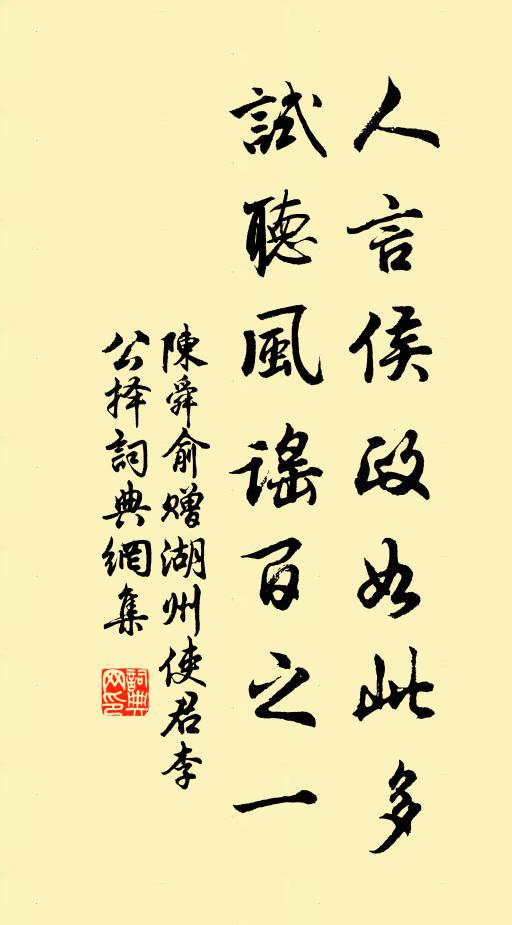 人言侯政如此多
試聽風謠百之一
陳舜俞贈湖州使君李
公择詞典網集
詞典
网印